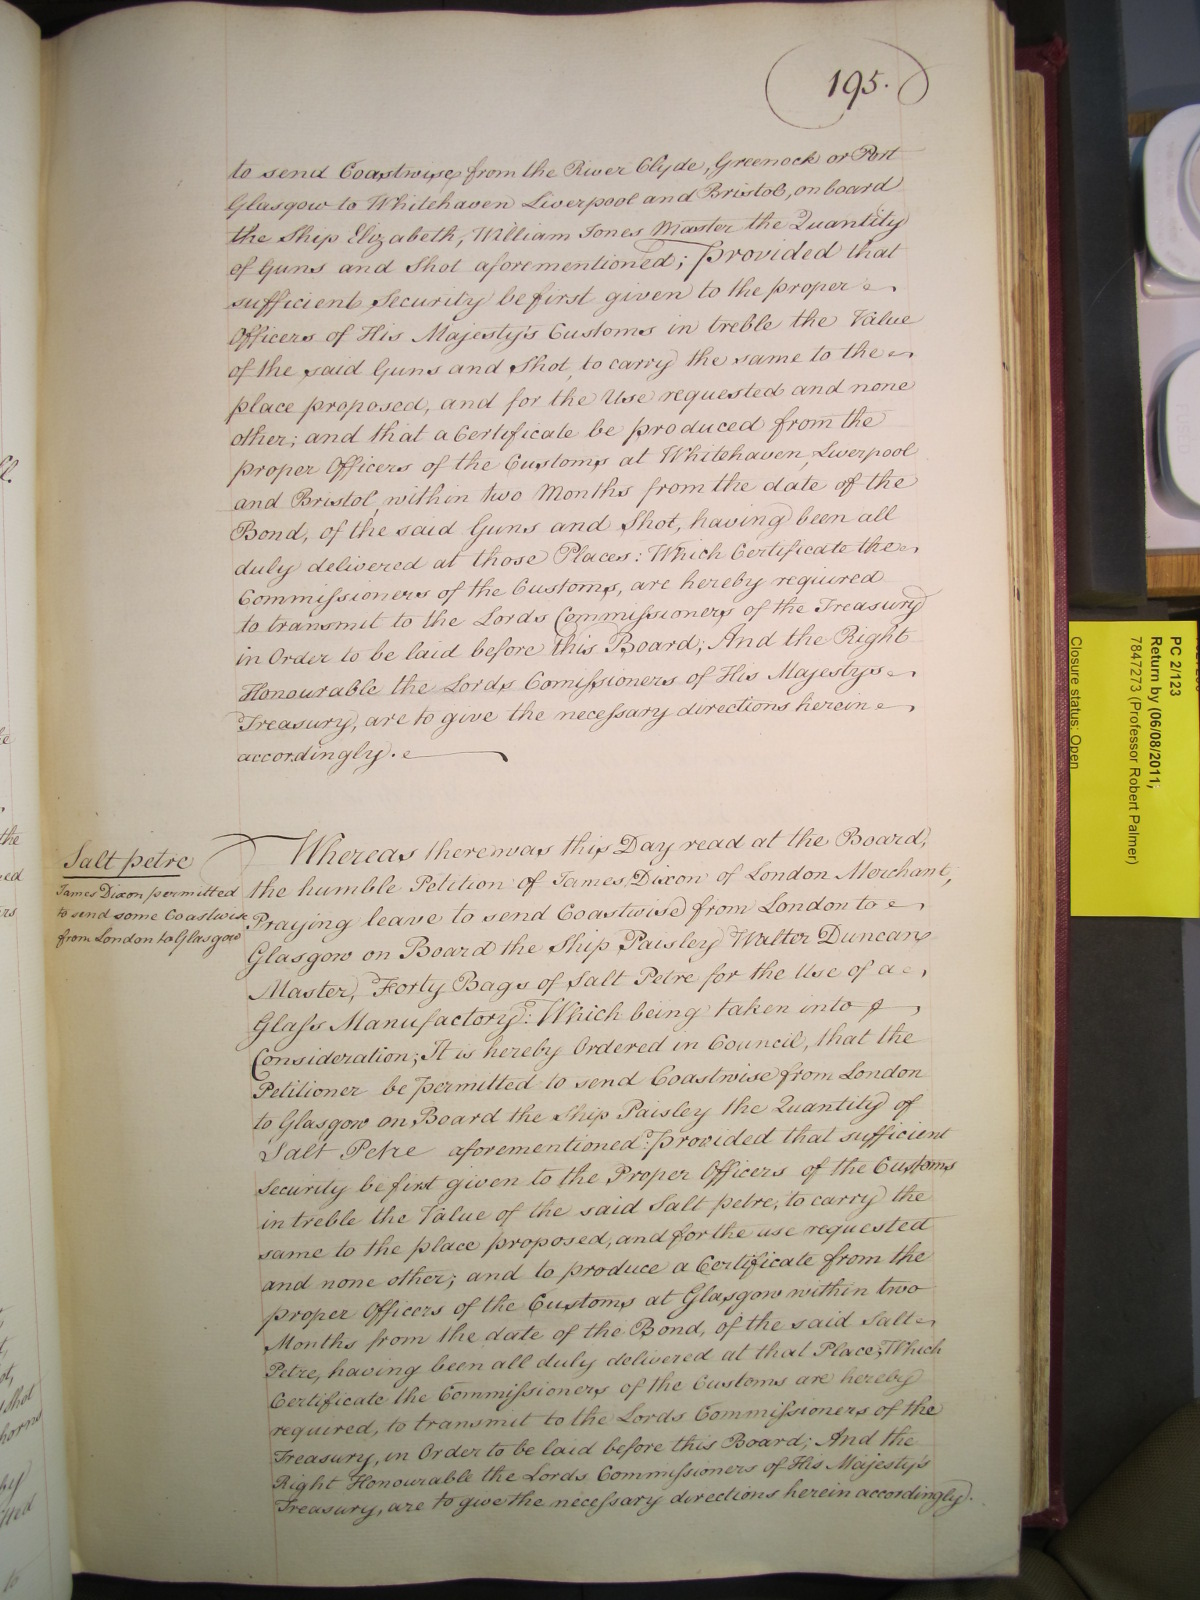 195.
to send Coastwise from the River Clyde, Greenock or Port
Glasgow to Whitehaven Liverpool and Bristol, on board
the Ship Elizabeth, William Jones Master the Quantity
of Guns and Shot aforementioned; provided that
sufficient Security be first given to the proper
Officers of His Majesty's Customs in treble the Value
of the said Guns and Shot, to carry the same to the
place proposed, and for the Use requested and none
other; and that a Certificate be produced from the
proper Officers of the Customs at Whitehaven, Liverpool
and Bristol, within two Months from the date of the
Bond, of the said Guns and Shot, having been all
duly delivered at those Places: Which Certificate the
Commissioners of the Customs, are hereby required
to transmit to the Lords Commissioners of the Treasury
in Order to be laid before this Board; And the Right
Honourable the Lords Comissioners of His Majestys
Treasury, are to give the necessary directions herein
accordingly.
Salt petre
James Dixon permitted
to send some Coastwise
from London to Glasgow
Whereas there was this Day read at the Board,
the humble Petition of James Dixon of London Merchant,
Praying leave to send Coastwise from London to
Glasgow on Board the Ship Paisley Walter Duncan
Master, Forty Bags of Salt Petre for the Use of a
Glass Manufactory: Which being taken into
Consideration; It is hereby Ordered in Council, that the
Petitioner be permitted to send Coastwise from London
to Glasgow on Board the Ship Paisley the Quantity of
Salt Petre aforementioned: provided that sufficient
Security be first given to the Proper Officers of the Customs
in treble the Value of the said Salt petre, to carry the
same to the place proposed, and for the use requested
and none other; and to produce a Certificate from the
proper Officers of the Customs at Glasgow within two
Months from the date of the Bond, of the said Salt
Petre, having been all duly delivered at that Place; Which
Certificate the Commissioners of the Customs are hereby
required, to transmit to the Lords Commissioners of the
Treasury, in Order to be laid before this Board; And the
Right Honourable the Lords Commissioners of His Majesty's
Treasury, are to give the necessary directions herein accordingly.
PC 2/123
Return by (06/08/2011;
7847273 (Professor Robert Palmer)
Closure status: Open